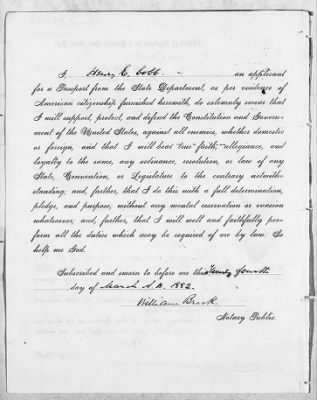 I, Henry C. Cobb - an applicant
for a Passport from the State Department, as per evidence of
American citizenship furnished herewith, do solemnly swear that
I will support, protect, and defend the Constitution and Govern-
ment of the United States, against all enemies, whether domestic
or foreign, and that I will bear true faith, allegiance, and
loyalty to the same, any ordinance, resolution, or law of any
State, Convention, or Legislature to the contrary notwith-
standing; and, further, that I do this with a full determination,
pledge, and purpose, without any mental reservation or evasion
whatsoever; and, further, that I will well and faithfully per-
form all the duties which may be required of me by law: So
help me God.
Subscribed and sworn to before me this Twenty fourth
day of March A.D. 1882.
William Brock
Notary Public.